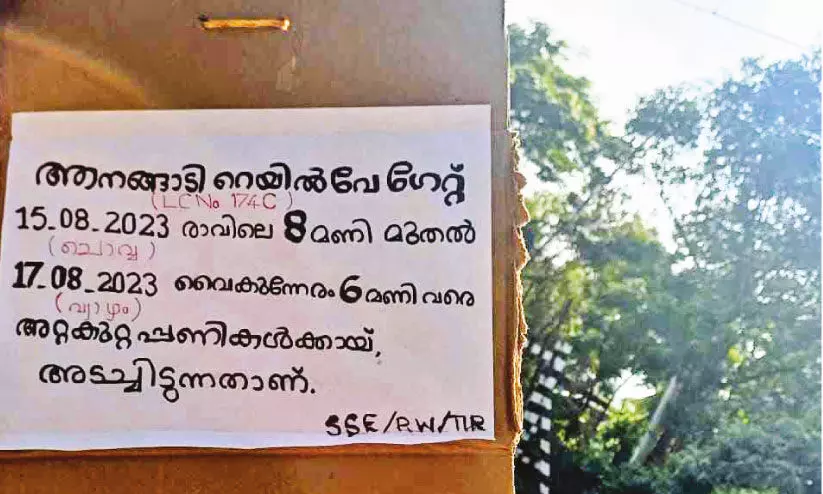 ആനങ്ങാടി റെയിൽവേ ഗേറ്റ്
(LC No 174C)
15-08-2023 രാവിലെ 8 മണി മുതൽ
(ചൊവ്വ)
17-08-2023 വൈകുന്നേരം 6 മണി വരെ
(വ്യാഴം)
അറ്റകുറ്റ പ്പണികൾക്കായ്,
അടച്ചിടുന്നതാണ്.
SSE/P.W/TIR